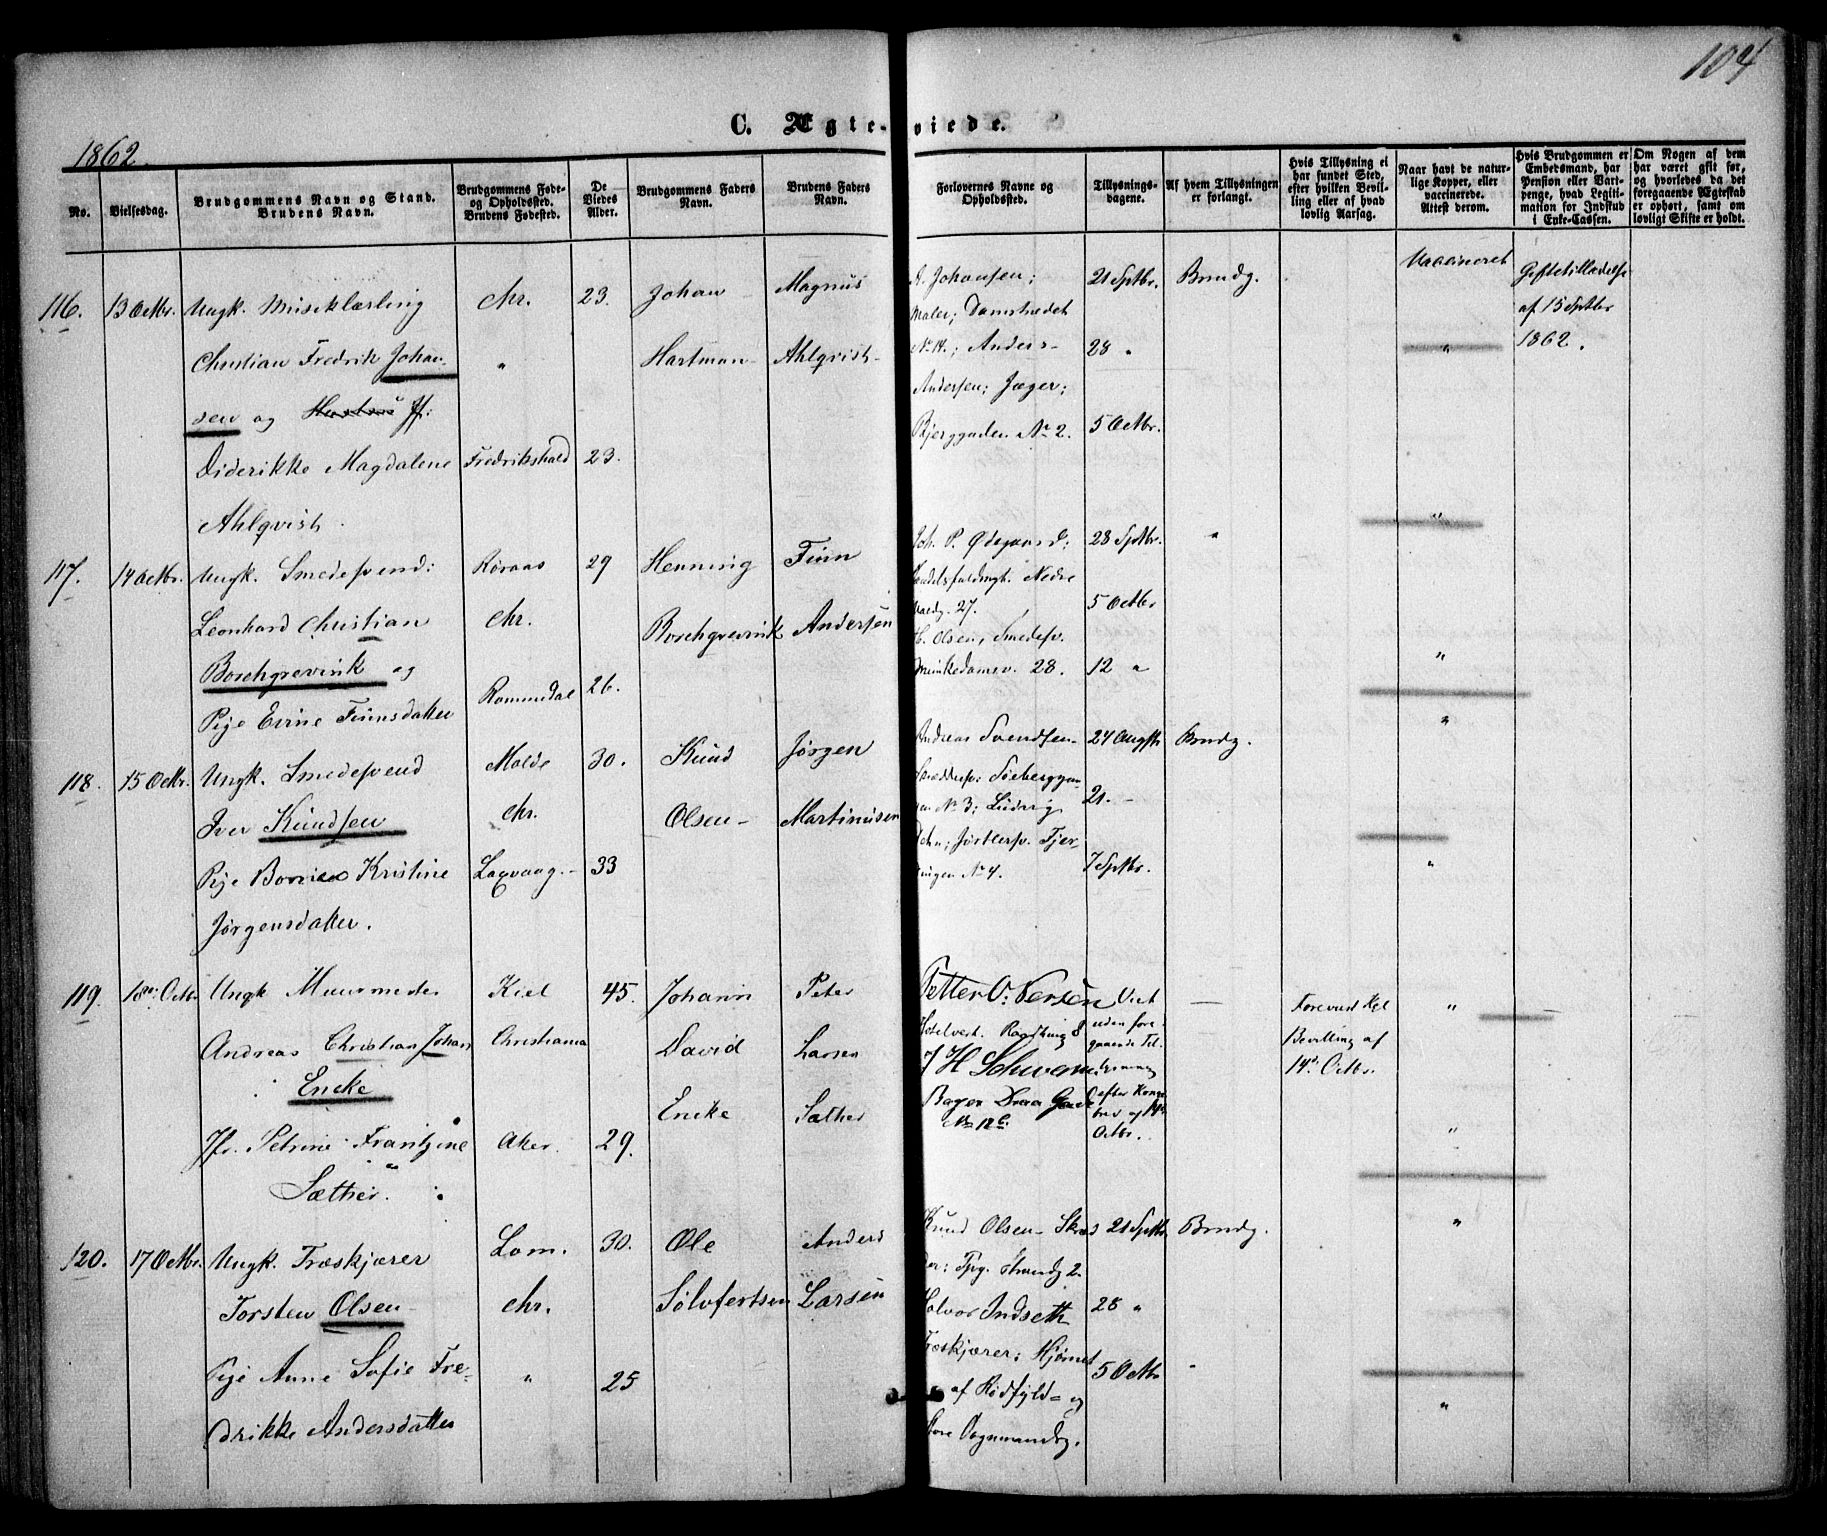 104
C. Ægte-viede.
1862.
No.
Vielsesdag.
Brudgommens Navn og Stand.
Brudens Navn.
Brudgommens Føde-
og Opholdssted.
Brudens Fødested.
De
Viedes
Alder.
Brudgommens Faders
Navn.
Brudens Faders
Navn.
Forlovernes Navne og
Opholdssted.
Tillysnings-
dagene.
Af hvem Tillysningen
er forlangt.
Hvis Tillysning ei
har fundet Sted,
efter hvilken Bevil-
ling eller af hvad
lovlig Aarsag.
Naar havt de natur-
lige Kopper, eller
vaccinerede.
Attest derom.
Hvis Brudgommen er
Embedsmand, har
Pension eller Vart-
penge, hvad Legiti-
mation for Indskud
i Enke-Cassen.
Om Nogen af dem
har været gift før,
og hvorledes da det
foregaaende Ægteskab
er ophørt, samt om
lovligt Skifte er holdt.
116. 13 Octbr. Ungk. Musiklærling Chr. 23. Johan Magnus
Christian Fredrik Johan- " Hartman Ahlqvist
sen og Jf:
Diderikke Magdalene Fredrikshald 23.
Ahlqvist.
A. Johansen; 21 Sptbr. Brudg. Vaccineret Giftetilladelse
Maler; Damstrædet af 15 Sptbr
No 14.; Anders 28 " " 1862.
Andersen; Jæger;
Bjerggaden No 2. 5 Octbr.
"
117. 14 Octbr. Ungk. Smedesvend: Røraas 29 Henning Finn
Leonhard Christian Chr. Borchgrevink Andersen
Borchgrevink og
Pige Erine Finnsdatter Romsdal 26.
Joh. P. Ødegaard; 28 Sptbr. "
Handelsfuldmgt. Nedre
Valdg. 27. 5 Octbr
H. Olsen, Smedesv.
Munkedamsv. 28. 12 " "
"
118. 15 Octbr. Ungk. Smedesvend Molde 30. Knud Jørgen
Iver Knudsen Chr. Olsen Martinusen
Pige Kristine 33
Jørgensdatter.
Andreas Svendsen 24 Augstr Brudg.
No 3; Ludvig 21. -
No 4. 7 Sptbr. "
119. 18de Octbr Ungk Muurmester Kiel 45. Johann Peter
Andreas Christian Johan Christiania David Larsen
Encke Encke Sæther
Jfr. Petrine Frantzine Aker. 29.
Sæther.
Petter O: Iversen Viet — Foreviist Kgl "
Raadhusg 8 uden fore- Bevilling af
gaaende Til- 14de Octbr.
J H Schwenn lysning
Bager efter Konge
No 18c. brev af 14de
Octbr. "
120. 17 Octbr. Ungk. Træskjærer Lom. 30. Ole Anders
Torsten Olsen Chr. Sølvfertsen Larsen
Pige Anne Sofie Fre- " 25
drikke Andersdatter
Knud Olsen 21 Sptbr. Brudg. "
Tpg. Strandg 2.
Halvor Indseth 28 "
Træskjærer; Hjørnet 5 Octbr "
af Rødfyld- og
Store Vognmandsg. "